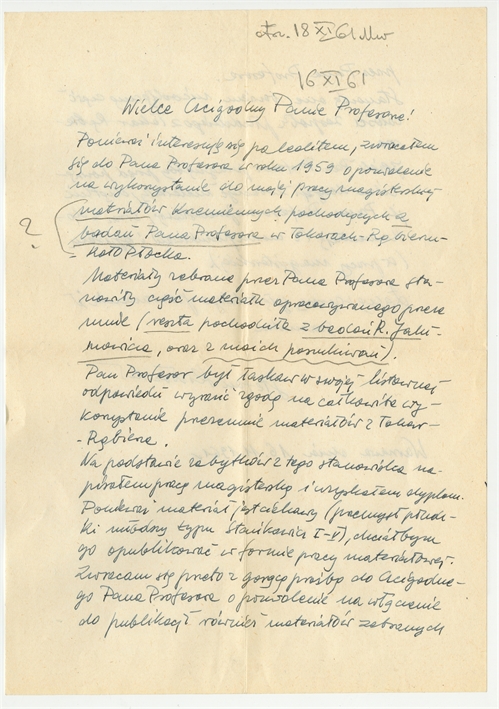 otrz. 18 XI 61 Mw
16 XI 61
Wielce Czcigodny Panie Profesorze!
Ponieważ interesuję się paleolitem, zwróciłem
się do Pana Profesora w roku 1959 o pozwolenie
na wykorzystanie do mojej pracy magisterskiej
materiałów krzemiennych pochodzących z
?
badań Pana Profesora w Tokarach-Rąbierzu
koło Płocka.
Materiały zebrane przez Pana Profesora sta-
nowiły część materiału opracowywanego przeze
mnie (reszta pochodziła z badań R. Jaki-
mowicza, oraz z moich poszukiwań).
Pan Profesor był łaskaw w swojej listownej
odpowiedzi wyrazić zgodę na całkowite wy-
korzystanie przezemnie materiałów z Tokar-
-Rąbierza.
Na podstawie zabytków z tego stanowiska na-
pisałem pracę magisterską i uzyskałem dyplom.
Ponieważ materiał jest ciekawy (przemysł
młodszy typu Stańkowicz I-V), chciałbym
go opublikować w formie pracy materiałowej.
Zwracam się przeto z gorącą prośbą do Czcigodne-
go Pana Profesora o pozwolenie na włączenie
do publikacji również materiałów zebranych